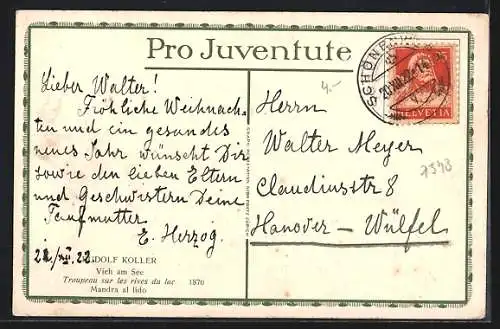 Pro Juventute
4.-
SCHÖNENW
20.XII.22
HELVETIA
Lieber Walter!
Fröhliche Weihnach-
ten und ein gesundes
neues Jahr wünscht Dir
sowie den lieben Eltern
und Geschwistern Deine
Taufmutter
E. Herzog.
Herrn
Walter Meyer
Claudiusstr 8
Hanover - Wülfel
7543
RUDOLF KOLLER
Vieh am See
Troupeau sur les rives du lac 1870
Mandra al lido